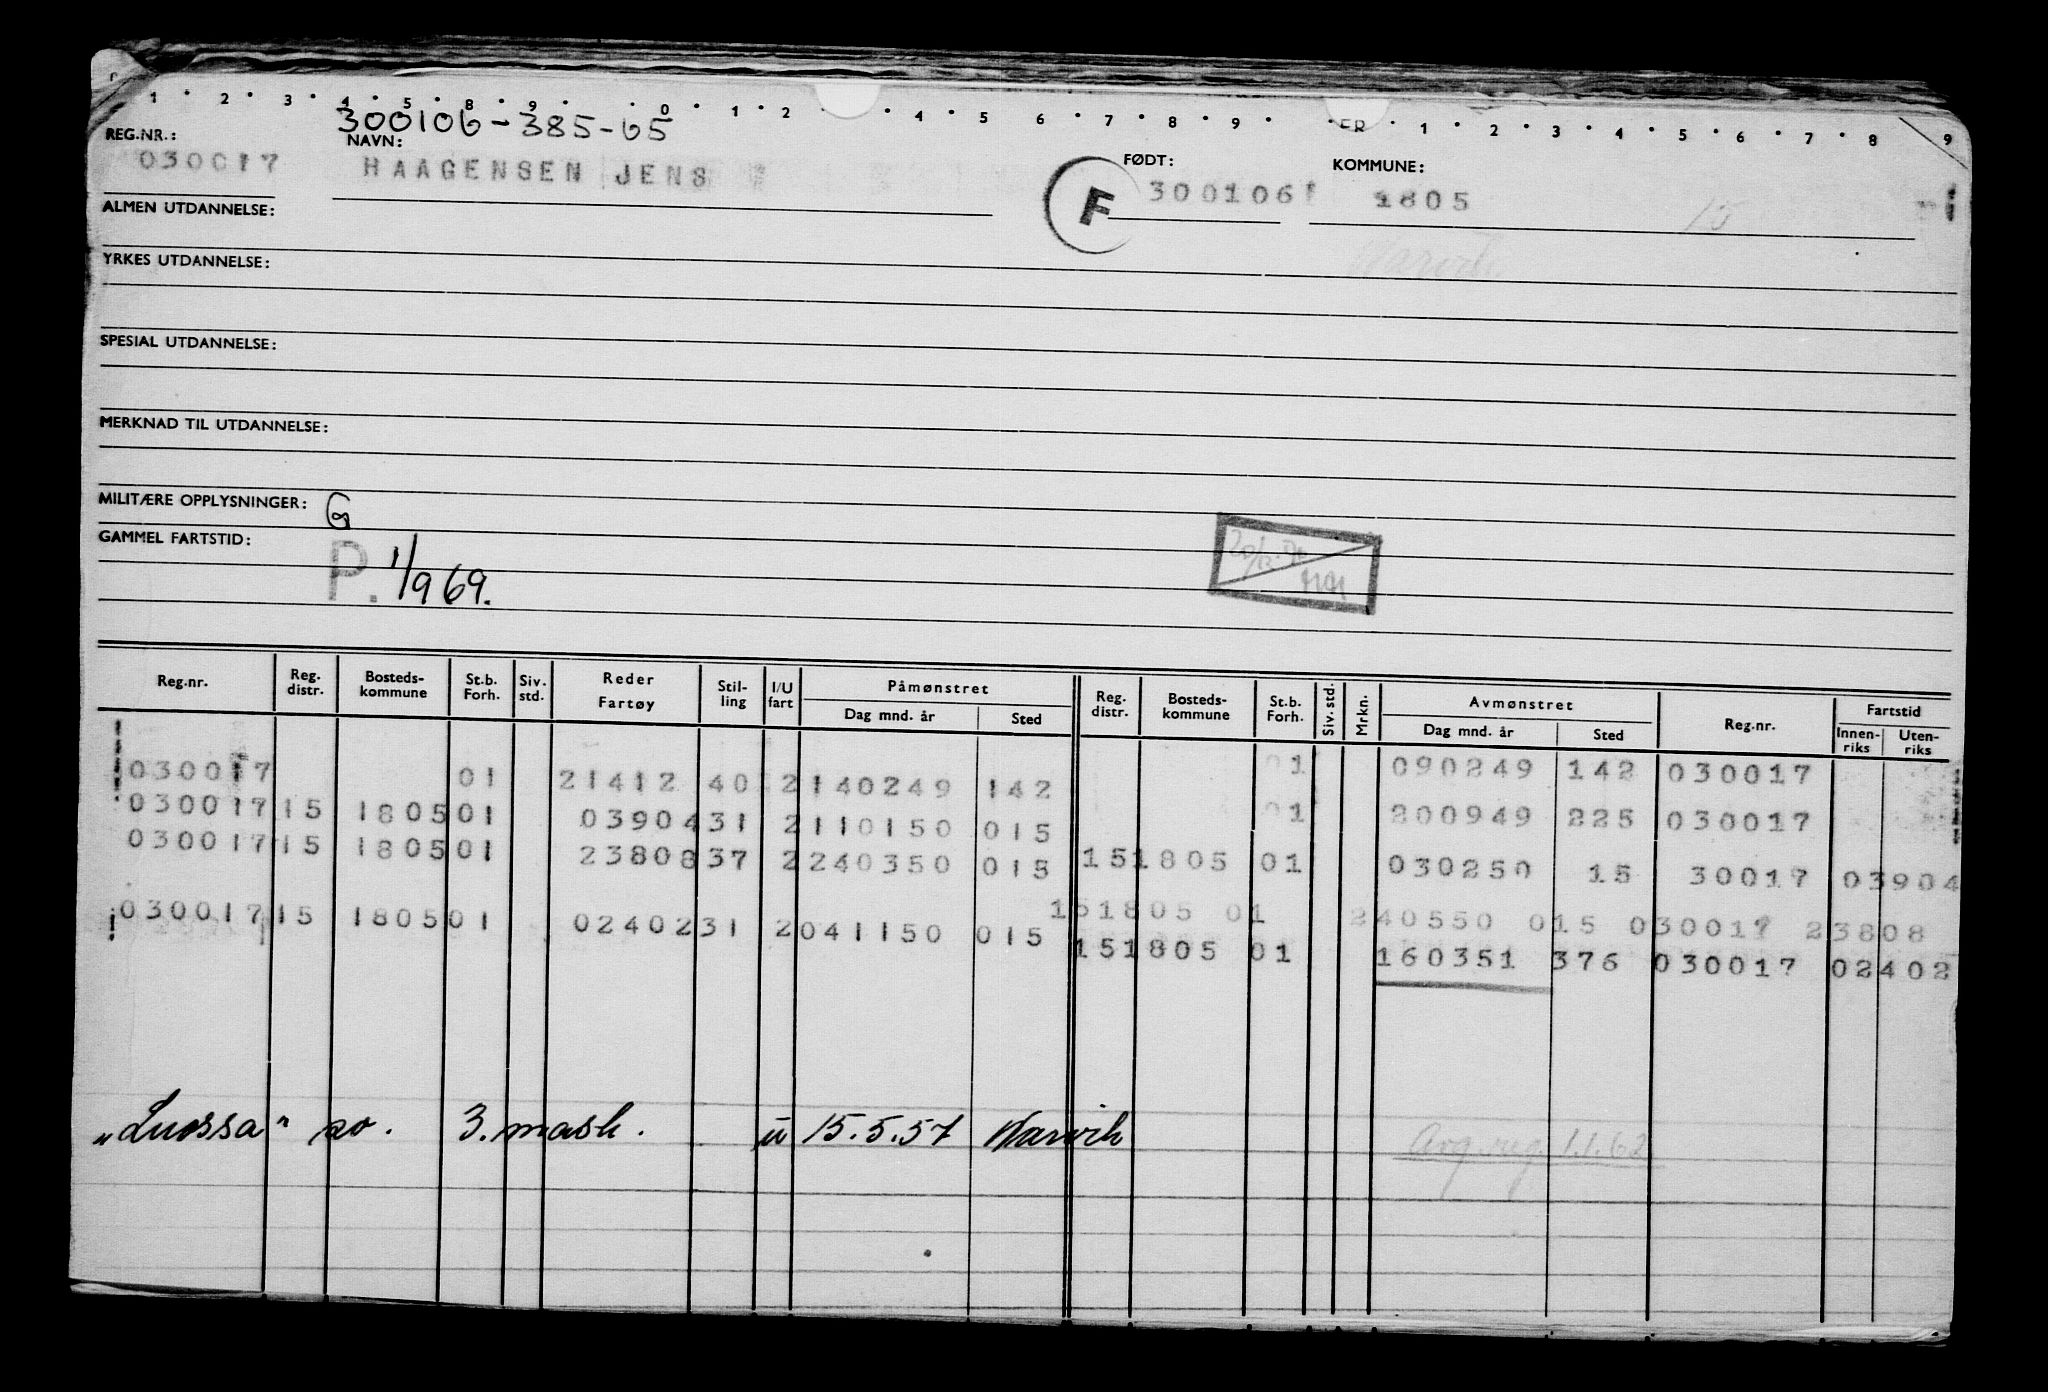 1 2 3 4 5 8 9 0 1 2 4 5 6 7 8 9 ER 1 2 3 4 5 6 7 8 9
300106-385-65
REG.NR.: NAVN: FØDT: KOMMUNE:
030017 HAAGENSEN JENS F 300106 1805 15
ALMEN UTDANNELSE:
Narvik
YRKES UTDANNELSE:
SPESIAL UTDANNELSE:
MERKNAD TIL UTDANNELSE:
MILITÆRE OPPLYSNINGER: G
GAMMEL FARTSTID:
P. 1/9 69.
Reg.nr. Reg. distr. Bosteds- kommune St.b. Forh. Siv. std. Reder Fartøy Stil- ling I/U fart Påmønstret Dag mnd. år Sted Reg. distr. Bosteds- kommune St.b. Forh. Siv. std. Mrkn. Avmønstret Dag mnd. år Sted Reg.nr. Fartstid Innen- riks Uten- riks
030017 01 21412 40 2 140249 142 01 090249 142 030017
030017 15 1805 01 03904 31 2 110150 015 01 200949 225 030017
030017 15 1805 01 23808 37 2 240350 015 15 1805 01 030250 15 30017 03904
030017 15 1805 01 02402 31 2 041150 015 15 1805 01 240550 015 030017 23808
15 1805 01 160351 376 030017 02402
"Luossa" so. 3. mask. u 15.5.57 Narvik
Avg. reg. 1.1.62